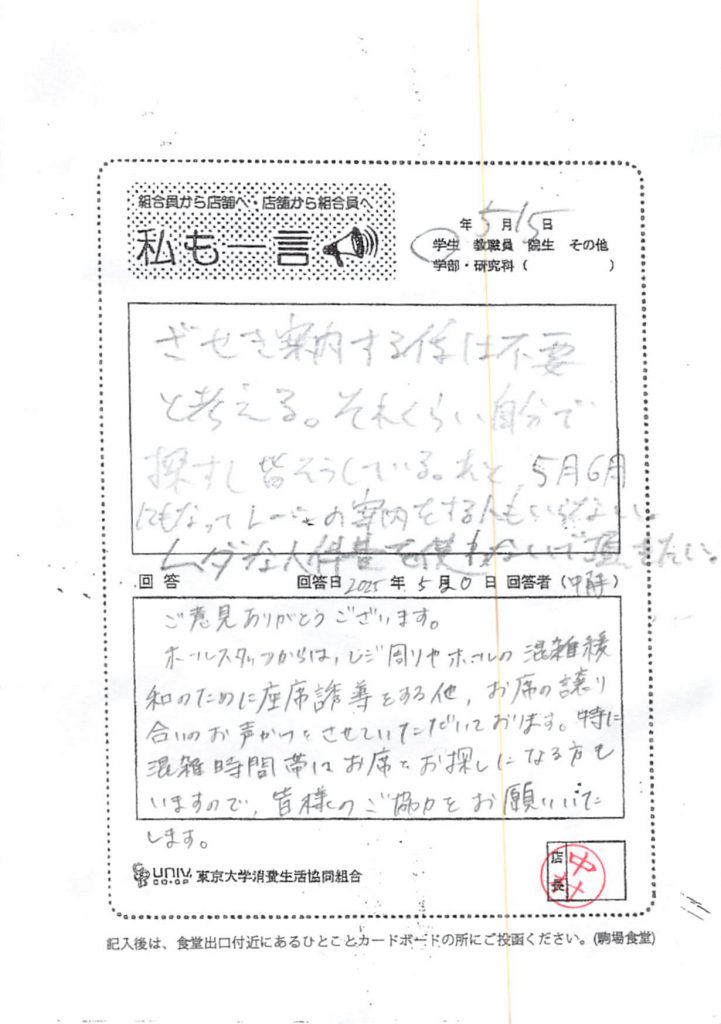 組合員から店舗へ・店舗から組合員へ
私も一言
年 5月15日
学生 教職員 院生 その他
学部・研究科 ( )
ざせき案内する係は不要
と考える。それくらい自分で
探すし皆そうしている。あと、5月6月
にもなってレーンの案内をする人もいらない。
ムダな人件費を使わないで頂きたい。
回答 回答日 2025年 5月20日 回答者 (中村)
ご意見ありがとうございます。
ホールスタッフからは、レジ周りやホールの混雑緩
和のために座席誘導をする他、お席の譲り
合いのお声かけをさせていただいております。特に
混雑時間帯はお席をお探しになる方も
いますので、皆様のご協力をお願いいた
します。
UNIV. CO-OP 東京大学消費生活協同組合
店長
中村
記入後は、食堂出口付近にあるひとことカードボードの所にご投函ください。(駒場食堂)